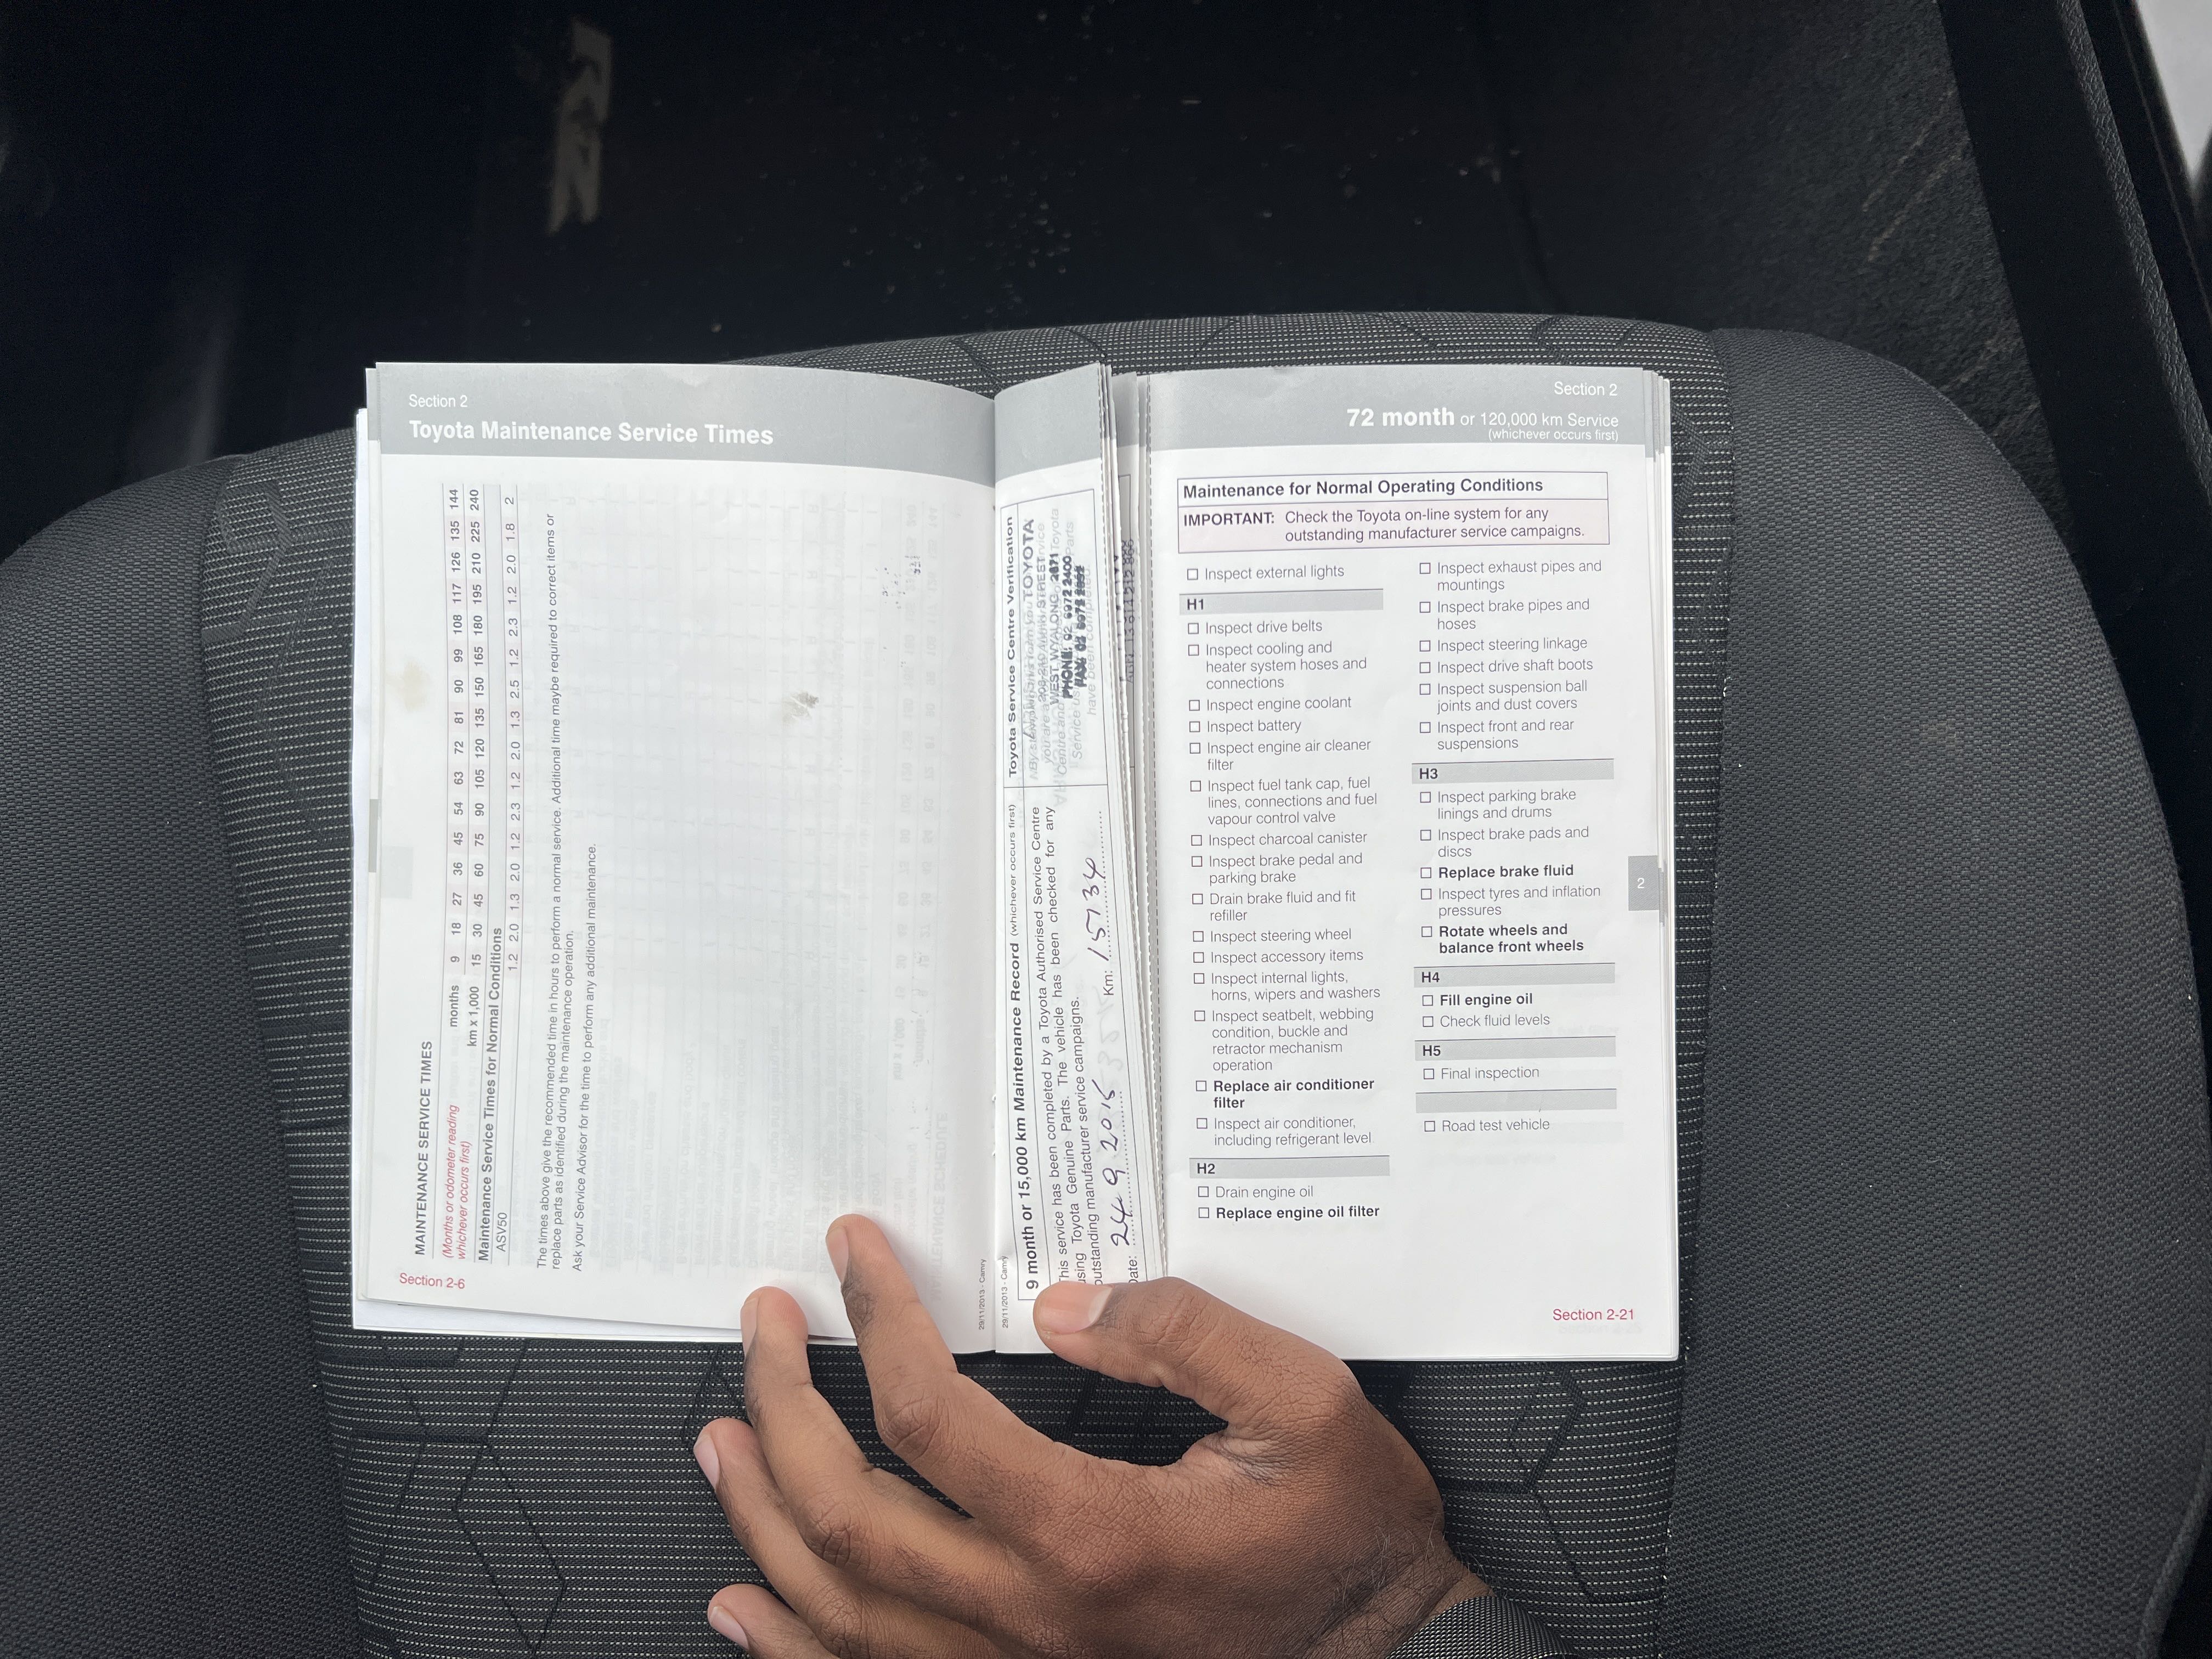 Section 2
Toyota Maintenance Service Times
MAINTENANCE SERVICE TIMES
(Months or odometer reading
whichever occurs first)
months 9 18 27 36 45 54 63 72 81 90 99 108 117 126 135 144
km x 1,000 15 30 45 60 75 90 105 120 135 150 165 180 195 210 225 240
Maintenance Service Times for Normal Conditions
ASV50 1.2 2.0 1.3 2.0 1.2 2.3 1.2 2.0 1.3 2.5 1.2 2.3 1.2 2.0 1.8 2
The times above give the recommended time in hours to perform a normal service. Additional time maybe required to correct items or
replace parts as identified during the maintenance operation.
Ask your Service Advisor for the time to perform any additional maintenance.
Section 2-6
29/11/2013 - Camry
29/11/2013 - Camry
9 month or 15,000 km Maintenance Record (whichever occurs first)
This service has been completed by a Toyota Authorised Service Centre
using Toyota Genuine Parts. The vehicle has been checked for any
outstanding manufacturer service campaigns.
Date: 24 9 2015 Km: 15134
Toyota Service Centre Verification
TOYOTA
STREET
WEST WYALONG 2671
PHONE: 02 6972 2400
Section 2
72 month or 120,000 km Service
(whichever occurs first)
Maintenance for Normal Operating Conditions
IMPORTANT: Check the Toyota on-line system for any
outstanding manufacturer service campaigns.
Inspect external lights
H1
Inspect drive belts
Inspect cooling and
heater system hoses and
connections
Inspect engine coolant
Inspect battery
Inspect engine air cleaner
filter
Inspect fuel tank cap, fuel
lines, connections and fuel
vapour control valve
Inspect charcoal canister
Inspect brake pedal and
parking brake
Drain brake fluid and fit
refiller
Inspect steering wheel
Inspect accessory items
Inspect internal lights,
horns, wipers and washers
Inspect seatbelt, webbing
condition, buckle and
retractor mechanism
operation
Replace air conditioner
filter
Inspect air conditioner,
including refrigerant level
H2
Drain engine oil
Replace engine oil filter
Inspect exhaust pipes and
mountings
Inspect brake pipes and
hoses
Inspect steering linkage
Inspect drive shaft boots
Inspect suspension ball
joints and dust covers
Inspect front and rear
suspensions
H3
Inspect parking brake
linings and drums
Inspect brake pads and
discs
Replace brake fluid
Inspect tyres and inflation
pressures
Rotate wheels and
balance front wheels
H4
Fill engine oil
Check fluid levels
H5
Final inspection
Road test vehicle
2
Section 2-21